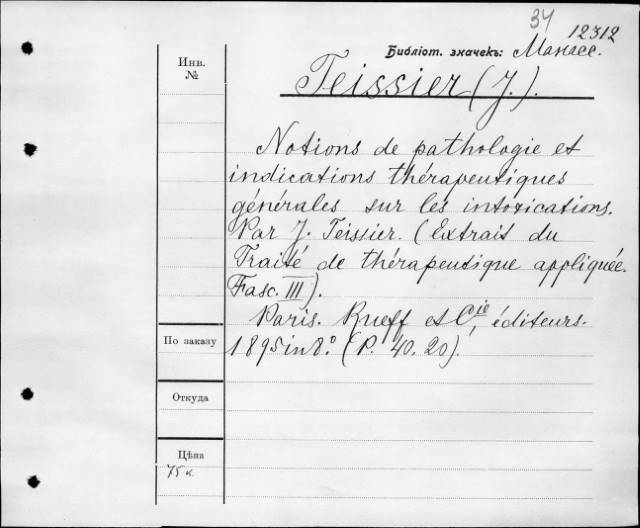 34 12312
Библіот. значекъ: Манасс.
Инв.
№
Teissier (J.).
Notions de pathologie et
indications thérapeutiques
générales sur les intoxications.
Par J. Teissier. (Extrait du
Traité de thérapeutique appliquée.
Fasc. III).
Paris. Rueff et Cie, éditeurs.
1895 in 8.° (P. 40. 20).
По заказу
Откуда
Цѣна
75 к.